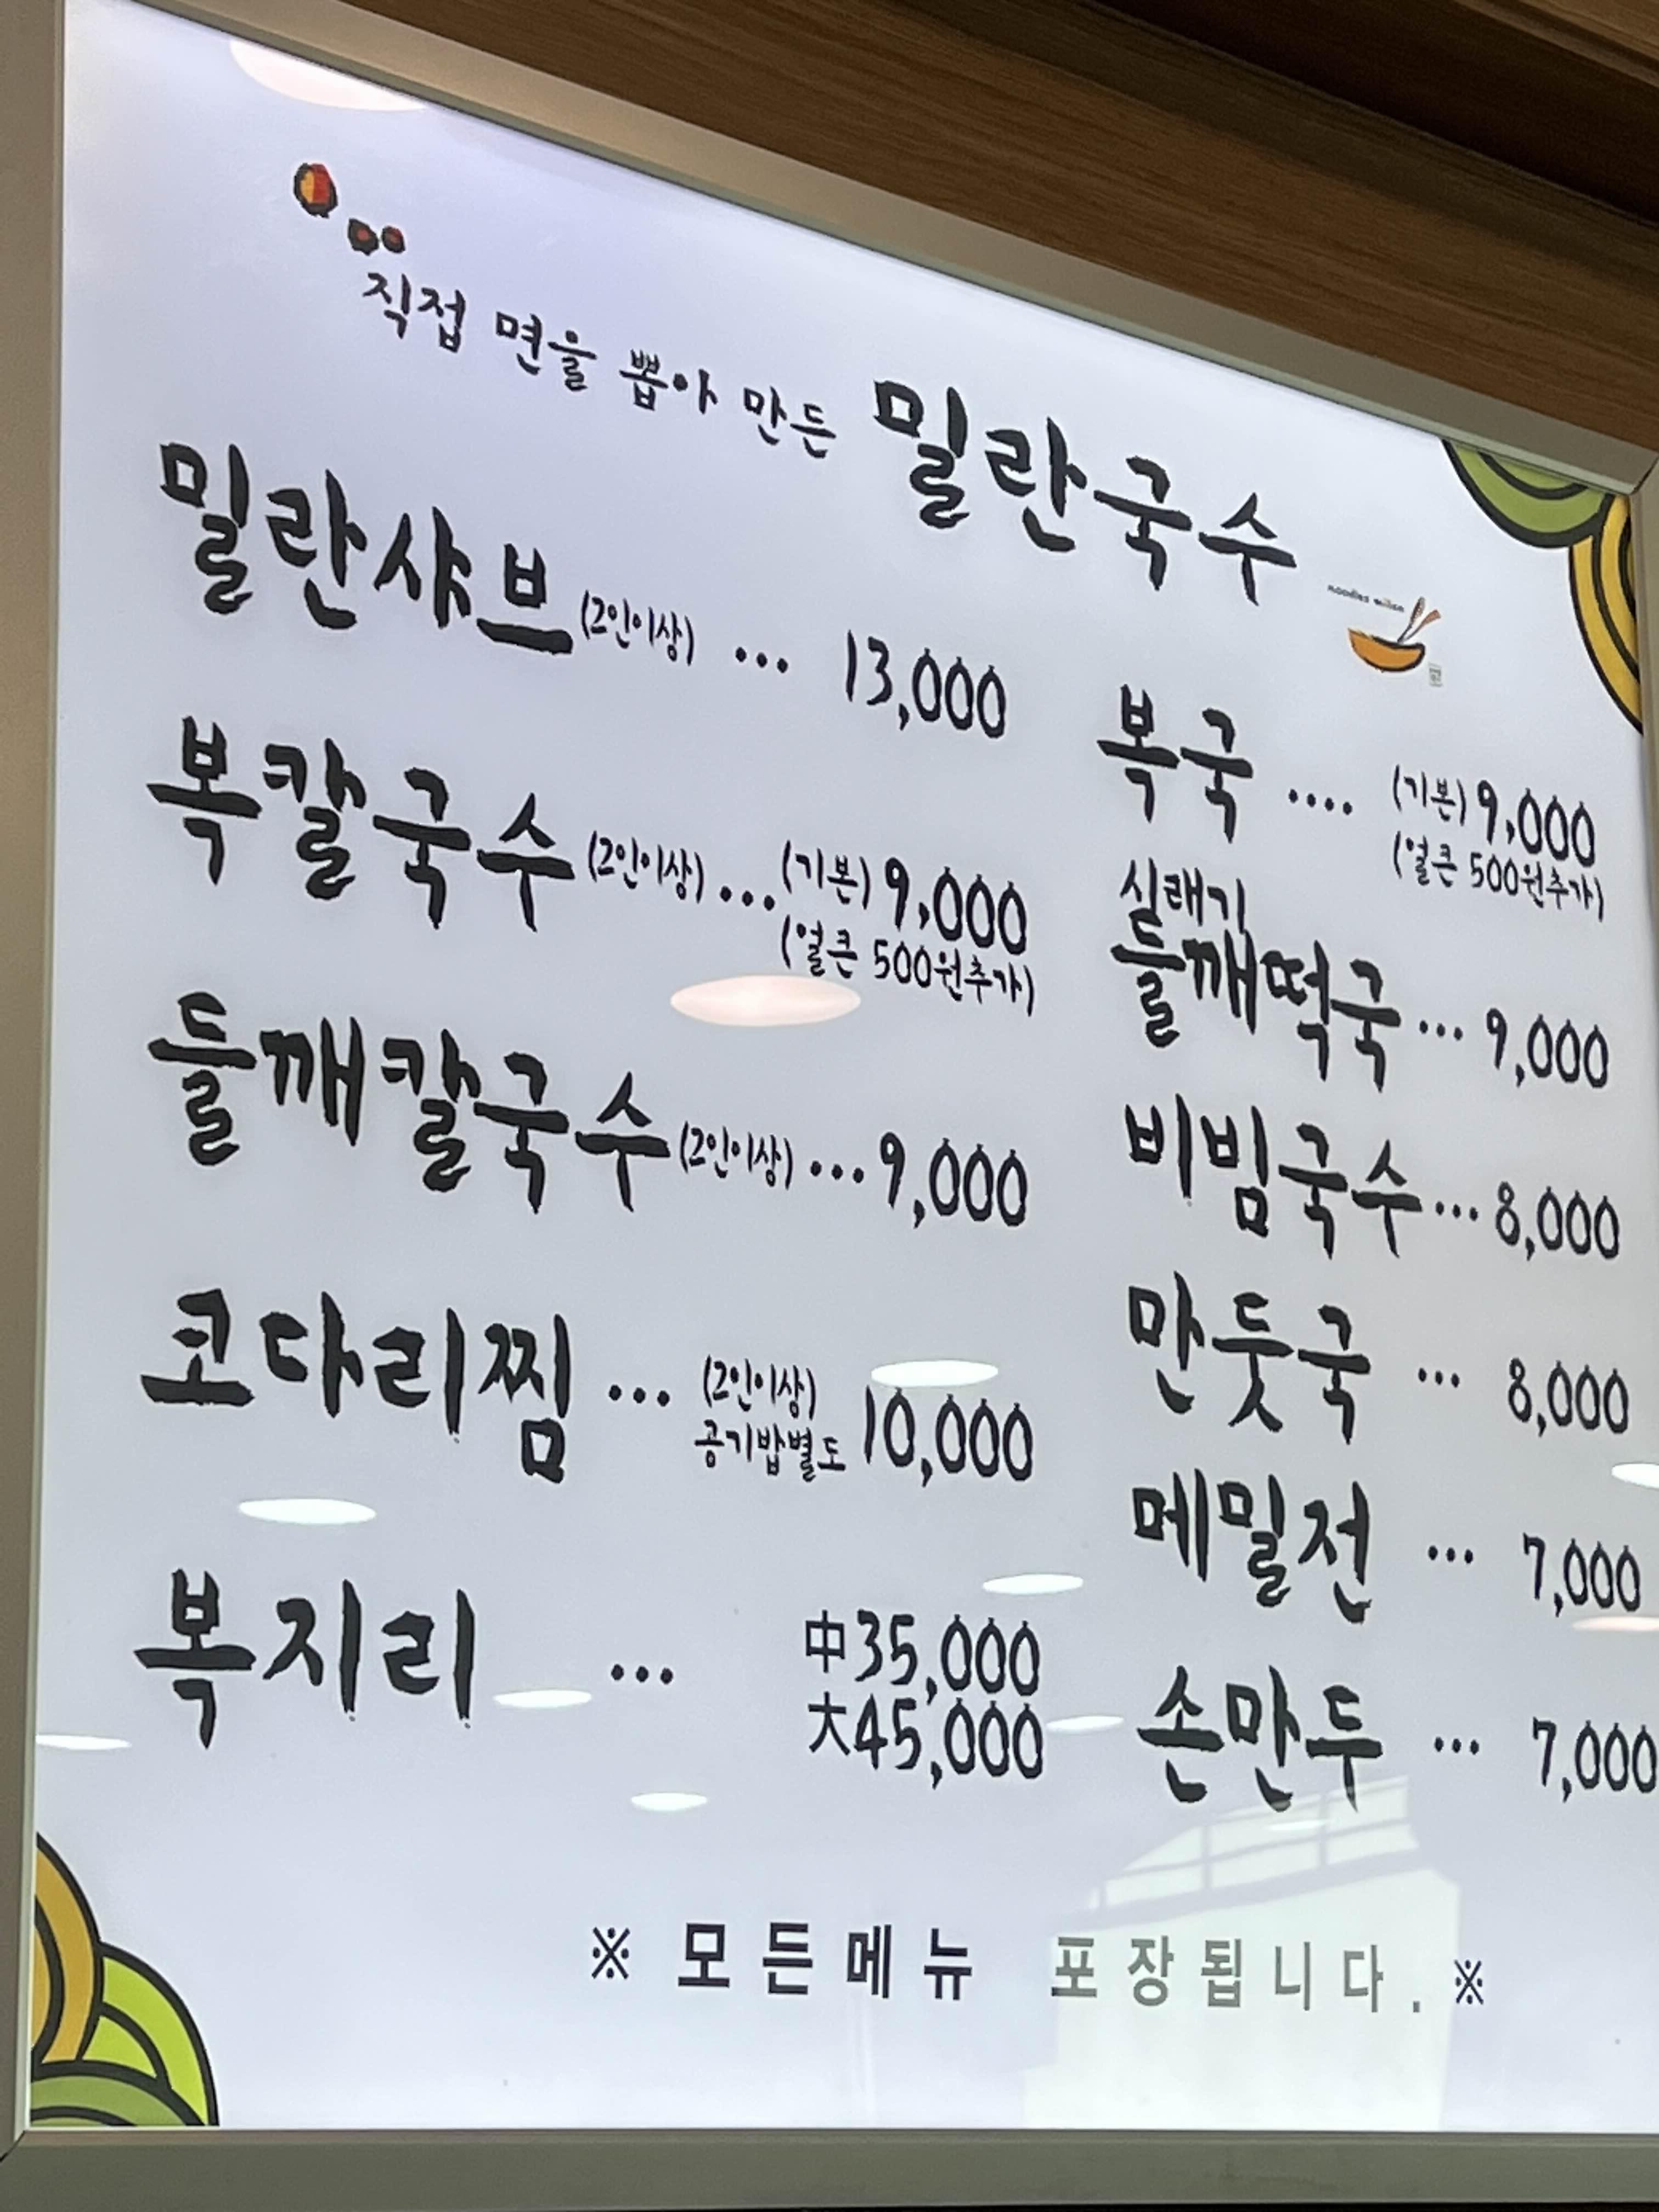 직접 면을 뽑아 만든 밀란국수
noodles milan
밀란샤브(2인이상) ... 13,000
복칼국수(2인이상)...(기본) 9,000
(얼큰 500원추가)
들깨칼국수(2인이상)...9,000
코다리찜 ... (2인이상) 10,000
공기밥별도
복지리 ... 中35,000
大45,000
복국 .... (기본) 9,000
(얼큰 500원추가)
실래기
들깨떡국... 9,000
비빔국수... 8,000
만둣국 ... 8,000
메밀전 ... 7,000
손만두 ... 7,000
※ 모든메뉴 포장됩니다. ※